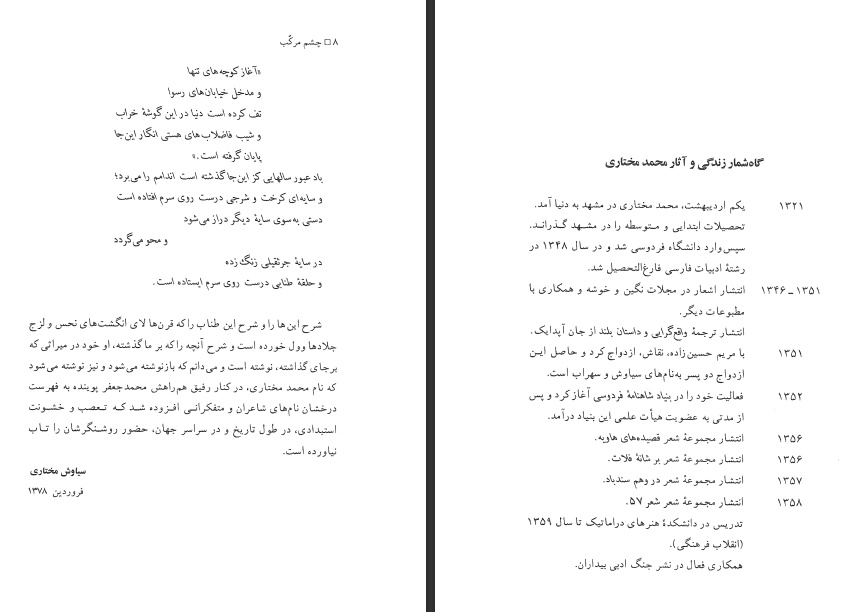 ۸ □ چشم مرکّب
«آغاز کوچه‌های تنها
و مدخل خیابان‌های رسوا
تف کرده است دنیا در این گوشهٔ خراب
و شیب فاضلاب‌های هستی انگار این‌جا
پایان گرفته است.»
باد عبور سالهایی کز این‌جا گذشته است اندامم را می‌برد؛
و سایه‌ای کرخت و شرجی درست روی سرم افتاده است
دستی به‌سوی سایهٔ دیگر دراز می‌شود
و محو می‌گردد
در سایهٔ جرثقیلی زنگ‌زده
و حلقهٔ طنابی درست روی سرم ایستاده است.
شرح این‌ها را و شرح این طناب را که قرن‌ها لای انگشت‌های نحس و لزج
جلادها وول خورده است و شرح آنچه را که بر ما گذشته، او خود در میراثی که
برجای گذاشته، نوشته است و می‌دانم که بازنوشته می‌شود و نیز نوشته می‌شود
که نام محمد مختاری، در کنار رفیق هم‌راهش محمدجعفر پوینده به فهرست
درخشان نام‌های شاعران و متفکرانی افزوده شد که تعصب و خشونت
استبدادی، در طول تاریخ و در سراسر جهان، حضور روشنگرشان را تاب
نیاورده است.
سیاوش مختاری
فروردین ۱۳۷۸
گاه‌شمار زندگی و آثار محمد مختاری
۱۳۲۱ یکم اردیبهشت، محمد مختاری در مشهد به دنیا آمد.
تحصیلات ابتدایی و متوسطه را در مشهد گذراند.
سپس وارد دانشگاه فردوسی شد و در سال ۱۳۴۸ در
رشتهٔ ادبیات فارسی فارغ‌التحصیل شد.
۱۳۵۱ـ۱۳۴۶ انتشار اشعار در مجلات نگین و خوشه و همکاری با
مطبوعات دیگر.
انتشار ترجمهٔ واقع‌گرایی و داستان بلند از جان آپدایک.
۱۳۵۱ با مریم حسین‌زاده، نقاش، ازدواج کرد و حاصل این
ازدواج دو پسر به‌نام‌های سیاوش و سهراب است.
۱۳۵۲ فعالیت خود را در بنیاد شاهنامهٔ فردوسی آغاز کرد و پس
از مدتی به عضویت هیأت علمی این بنیاد درآمد.
۱۳۵۶ انتشار مجموعهٔ شعر قصیده‌های هاویه.
۱۳۵۶ انتشار مجموعهٔ شعر بر شانهٔ فلات.
۱۳۵۷ انتشار مجموعهٔ شعر در وهم سندباد.
۱۳۵۸ انتشار مجموعهٔ شعر شعر ۵۷.
تدریس در دانشکدهٔ هنرهای دراماتیک تا سال ۱۳۵۹
(انقلاب فرهنگی).
همکاری فعال در نشر جنگ ادبی بیداران.